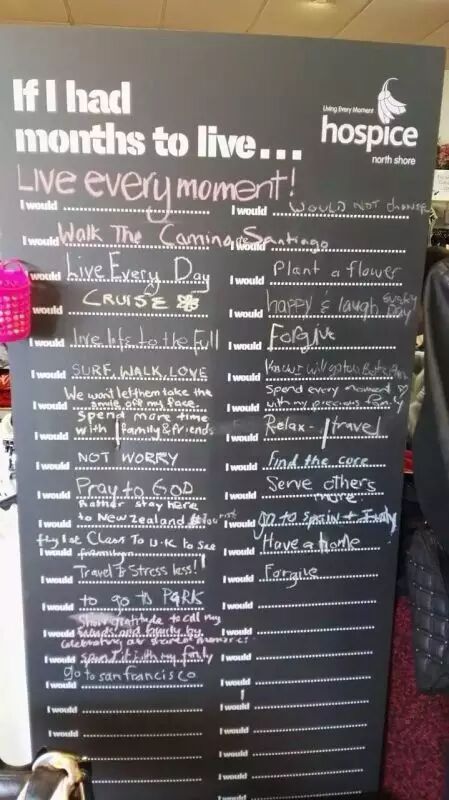 If I had
months to live...
Living Every Moment
hospice
north shore
Live every moment!
I would
I would Walk The Camino de Santiago
I would Live Every Day
would CRUISE
I would live life to the full
I would SURF, WALK, LOVE
We wont let them take the
I would smile off my face
Spend more time
I would with family & friends
I would NOT WORRY
I would Pray to GOD
Rather stay here
I would to New Zealand
fly 1st Class To U.K to see
I would
I would Travel & Stress less!
I would to go to PARK
Show gratitude to all my
I would friends and family by
celebrating our shared memories
I would spend it with my family
go to san francisco
I would
I would
I would
I would
I would WOULD NOT change
I would
I would Plant a flower
I would happy & laugh every Day
I would Forgive
I would know I will go to a Better Place
Spend every moment
I would with my precious family
I would Relax - travel
I would find the core
I would Serve others
more
I would go to Spain + Italy
I would Have a home
I would Forgive
I would
I would
I would
I would
I would
I would
I would
I would